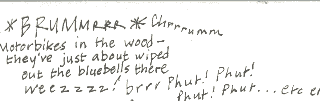 *BRUMMrrr * Chrrrumm
Motorbikes in the wood -
they've just about wiped
out the bluebells there
weezzzz! brrr Phut! Phut!
Phut! Phut... etc et